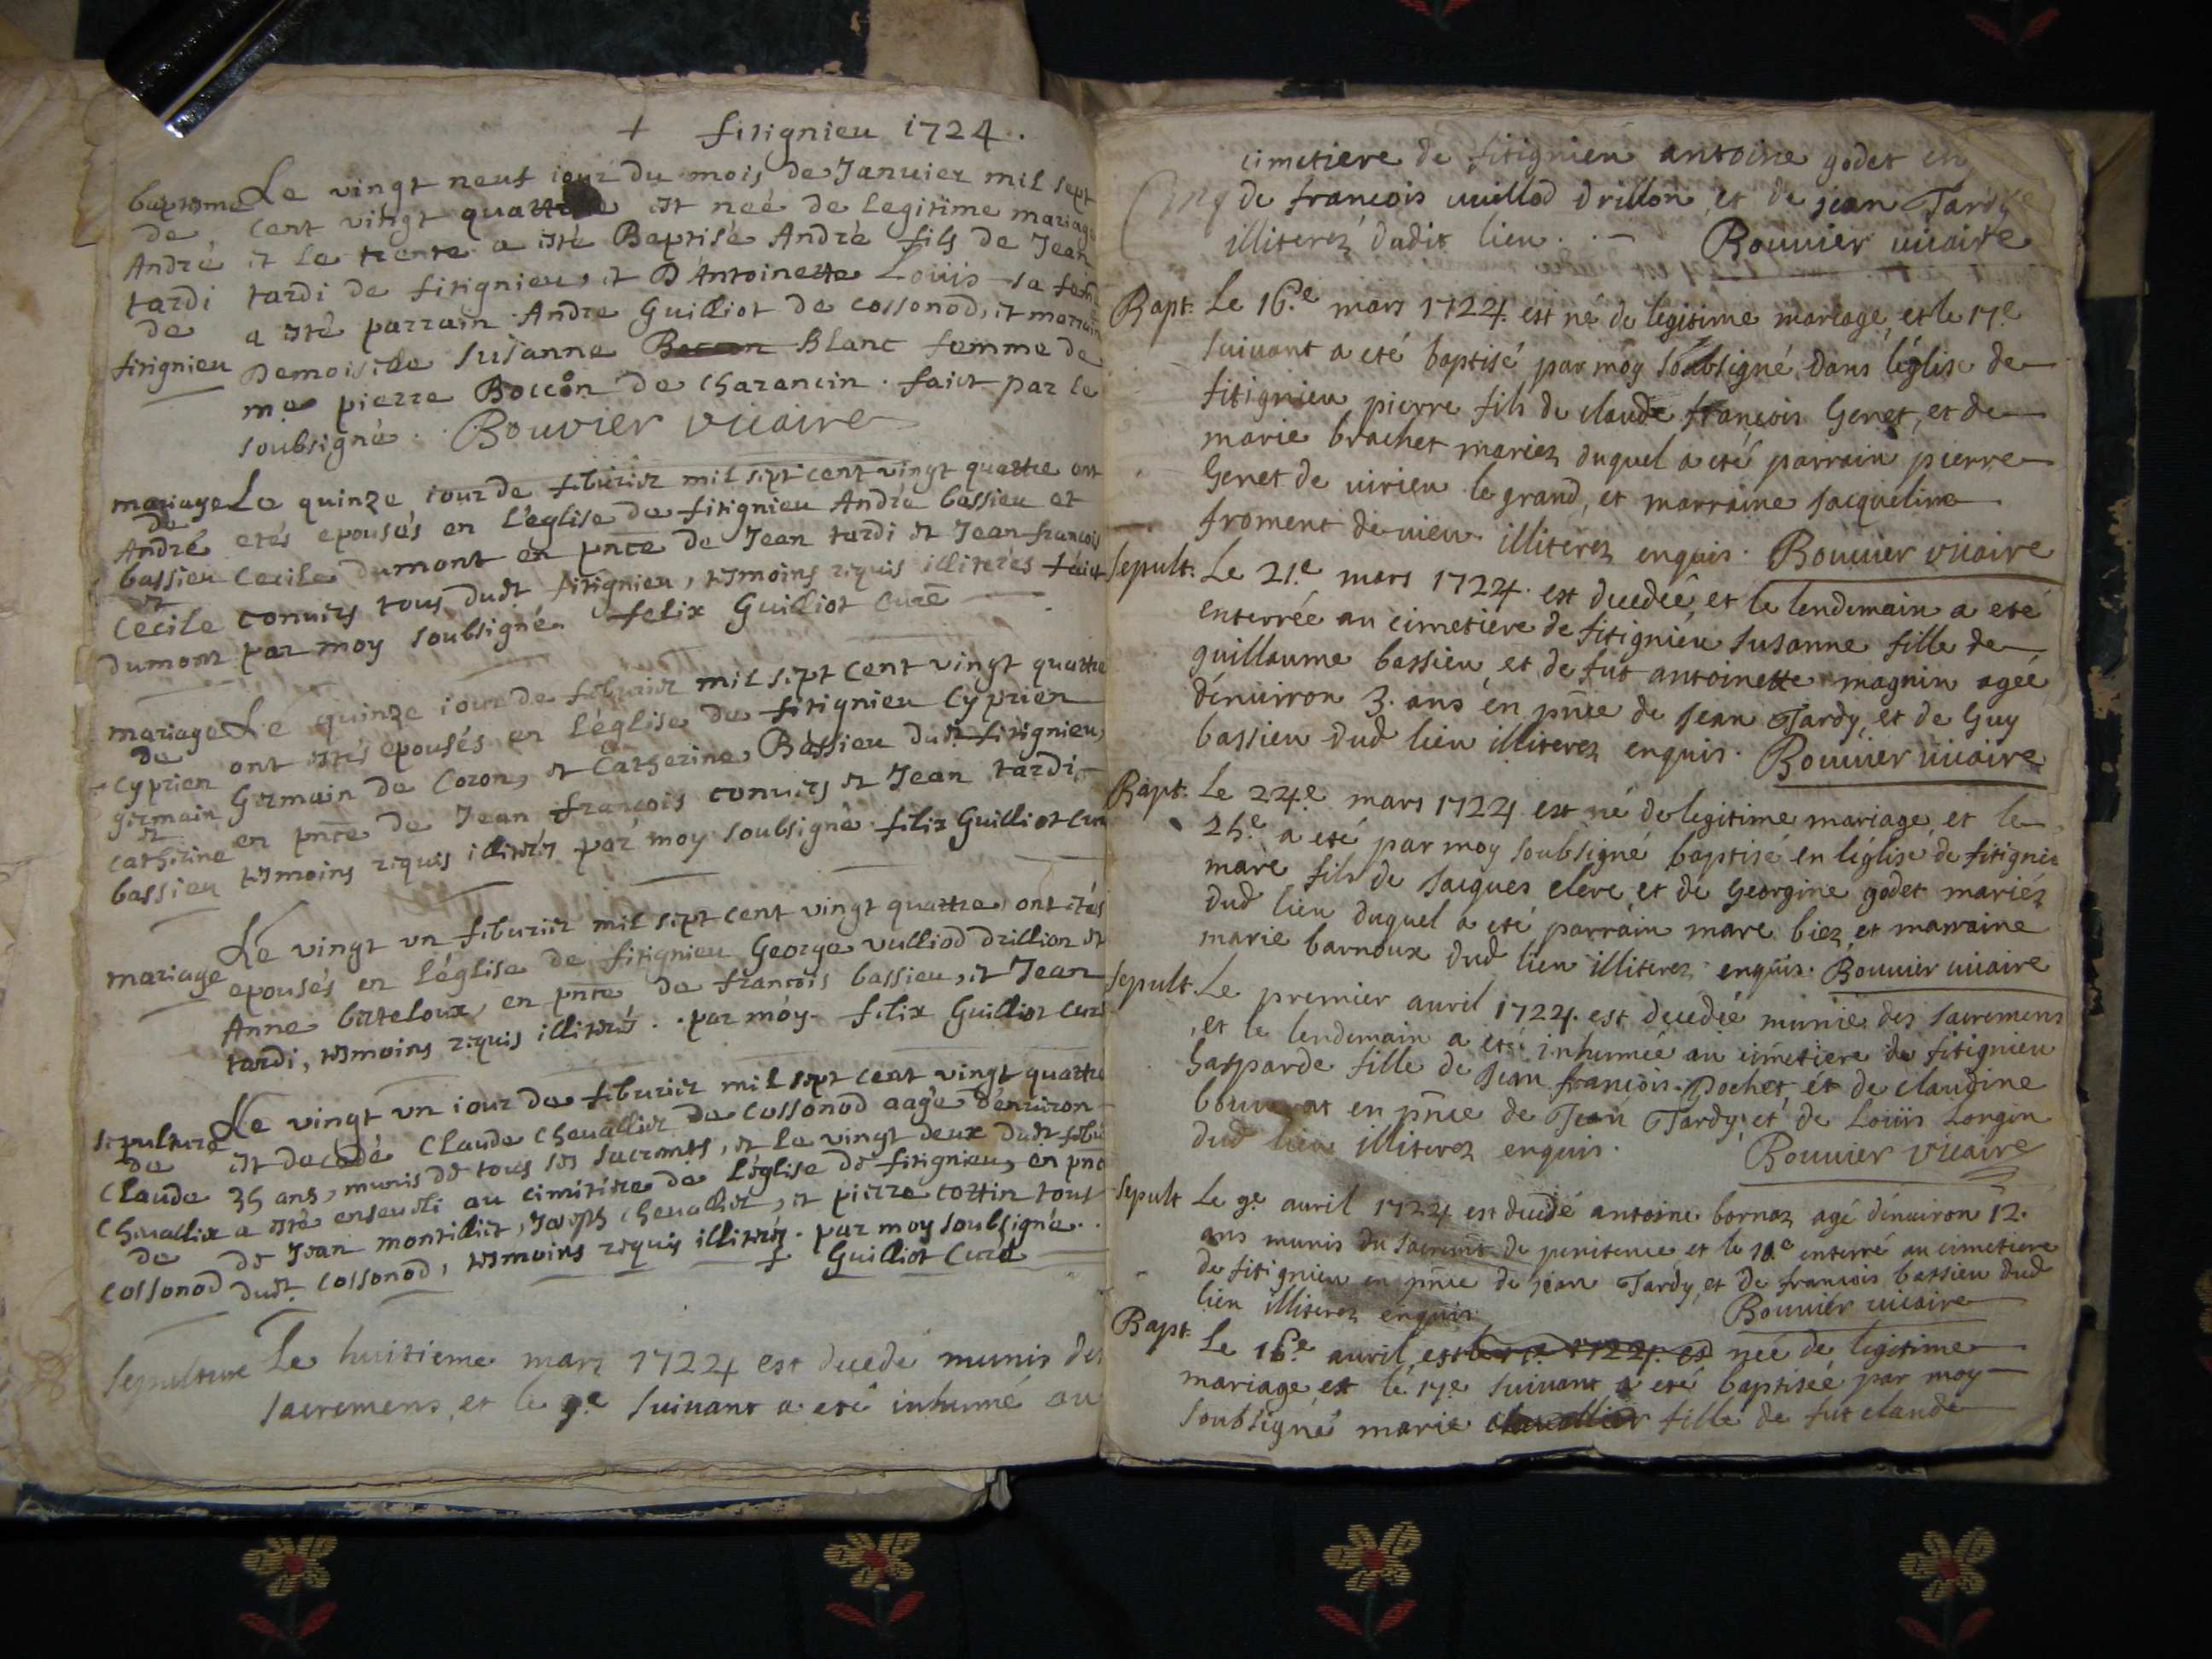 + fitignieu 1724.
baptome Le vingt neuf iour du mois de Januier mil sept
de cent vingt quattre est neé de legitime mariage
André et le trente a esté Baptisé André fils de Jean
tardi tardi de fitignieu, et D'Antoinette Loüis sa fem
de a esté parrain Andre Guilliot de cossonod, et marrain
fitignieu Demoiselle Susanne Boccon Blanc femme de
me pierre Boccon de charancin. faict par le
soubsigné. Bouvier vicaire
mariage Le quinze iour de feburier mil sept cent vingt quattre ont
de etés epousés en l'eglise de fitignieu André bassieu et
André Cecile dumont en pnce de Jean tardi et Jean françois
bassieu conuers tous dudt fitignieu, tesmoins requis illiterés faict
et par moy soubsigné. felix Guilliot curé
Cecile
dumont
mariage Le quinze iour de feburier mil sept cent vingt quattre
de ont estés epousés en l'eglise de fitignieu Cyprien
Cyprien Germain de Coron, et Catherine Bassieu dudt fitignieu,
germain en pnce de Jean françois conuers et Jean tardi
et tesmoins requis illiterés par moy soubsigné felix Guilliot cur
catherine
bassieu
Le vingt vn feburier mil sept cent vingt quattre ont étés
mariage epousés en l'eglise de fitignieu George vulliod drillion et
Anne berteloux, en pnce de francois bassieu, et Jean
tardi, tesmoins requis illiterés. par moy. felix Guilliot curé
Le vingt vn iour de feburier mil sept cent vingt quattre
sepulture est decedé Claude Cheuallier de Cossonod aagé d'enuiron
de 35 ans, munis de tous ses sacremts, et le vingt deux dudt febu
Claude a esté enseueli au cimitiere de l'église de fitignieu, en pnce
Cheuallier de Jean montillier, Joseph Cheuallier, et pierre cottin tous
de dudt. Cossonod, tesmoins requis illiterés. par moy soubsigné.
Cossonod + Guilliot Curé
Sepulture Le huitieme mars 1724 est decedé munis des
sacremens, et le 9e suiuant a eté inhumé au
cimetiere de fitignieu antoine godet en
de francois vuillod drillon, et de jean Tardy
illiterez dudit lieu. Bouuier uicaire
Bapt. Le 16.e mars 1724. est né de legitime mariage, et le 17.e
suiuant a eté baptisé par moy soubsigné dans l'église de
fitignieu pierre fils de claude françois Genet, et de
marie brachet mariez duquel a eté parrain pierre
Genet de uirieu le grand, et marraine jacqueline
froment de uieu. illiterez enquis. Bouuier vicaire
Sepult. Le 21.e mars 1724. est decedée, et le lendemain a eté
enterrée au cimetiere de fitignieu susanne fille de
guillaume bassieu, et de fut antoinette magnin ageé
d'enuiron 3. ans en pnce de jean Tardy, et de Guy
bassieu dud lieu illiterez enquis. Bouuier uicaire
Bapt. Le 24.e mars 1724 est né de legitime mariage, et le
25.e a eté par moy soubsigné baptisé en l'église de fitignieu
marc fils de jacques clerc, et de Georgine godet mariéz
dud lieu duquel a eté parrain marc biez, et marraine
marie barnoux dud lieu illiterez enquis. Bouuier uicaire
Sepult. Le premier auril 1724. est decedée munie des sacremens
et le lendemain a eté inhumeé au cimetiere de fitignieu
Gasparde fille de jean françois Pochet, et de claudine
bouuerat en pnce de Jean Tardy, et de Loüis Longin
dud lieu illiterez enquis. Bouuier vicaire
Sepult Le 9e auril 1724 est decedé antoine bornoz agé d'enuiron 12.
ans munis du sacremt de penitence et le 10e enterré au cimetiere
de fitignieu en pnce de jean Tardy, et de francois bassieu dud
lieu illiterez enquis. Bouuier uicaire
Bapt. Le 16.e auril est 1724. est neé de legitime
mariage et le 17.e suiuant a eté baptiseé par moy
soubsigné marie cheuallier fille de fut claude